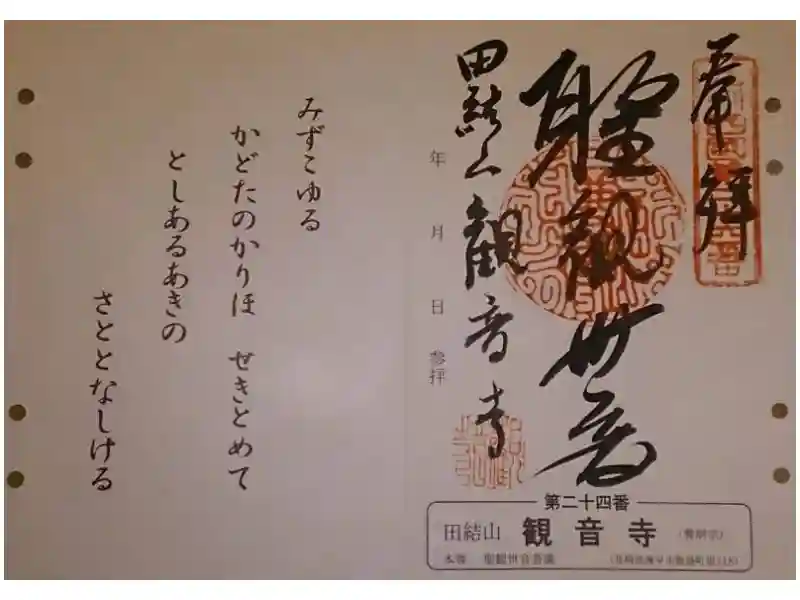 奉拝
聖観世音
田結山 観音寺
年 月 日 参拝
第二十四番
田結山 観音寺
本尊 聖観世音菩薩
みずこゆる
かどたのかりほ せきとめて
としあるあきの
さととなしける